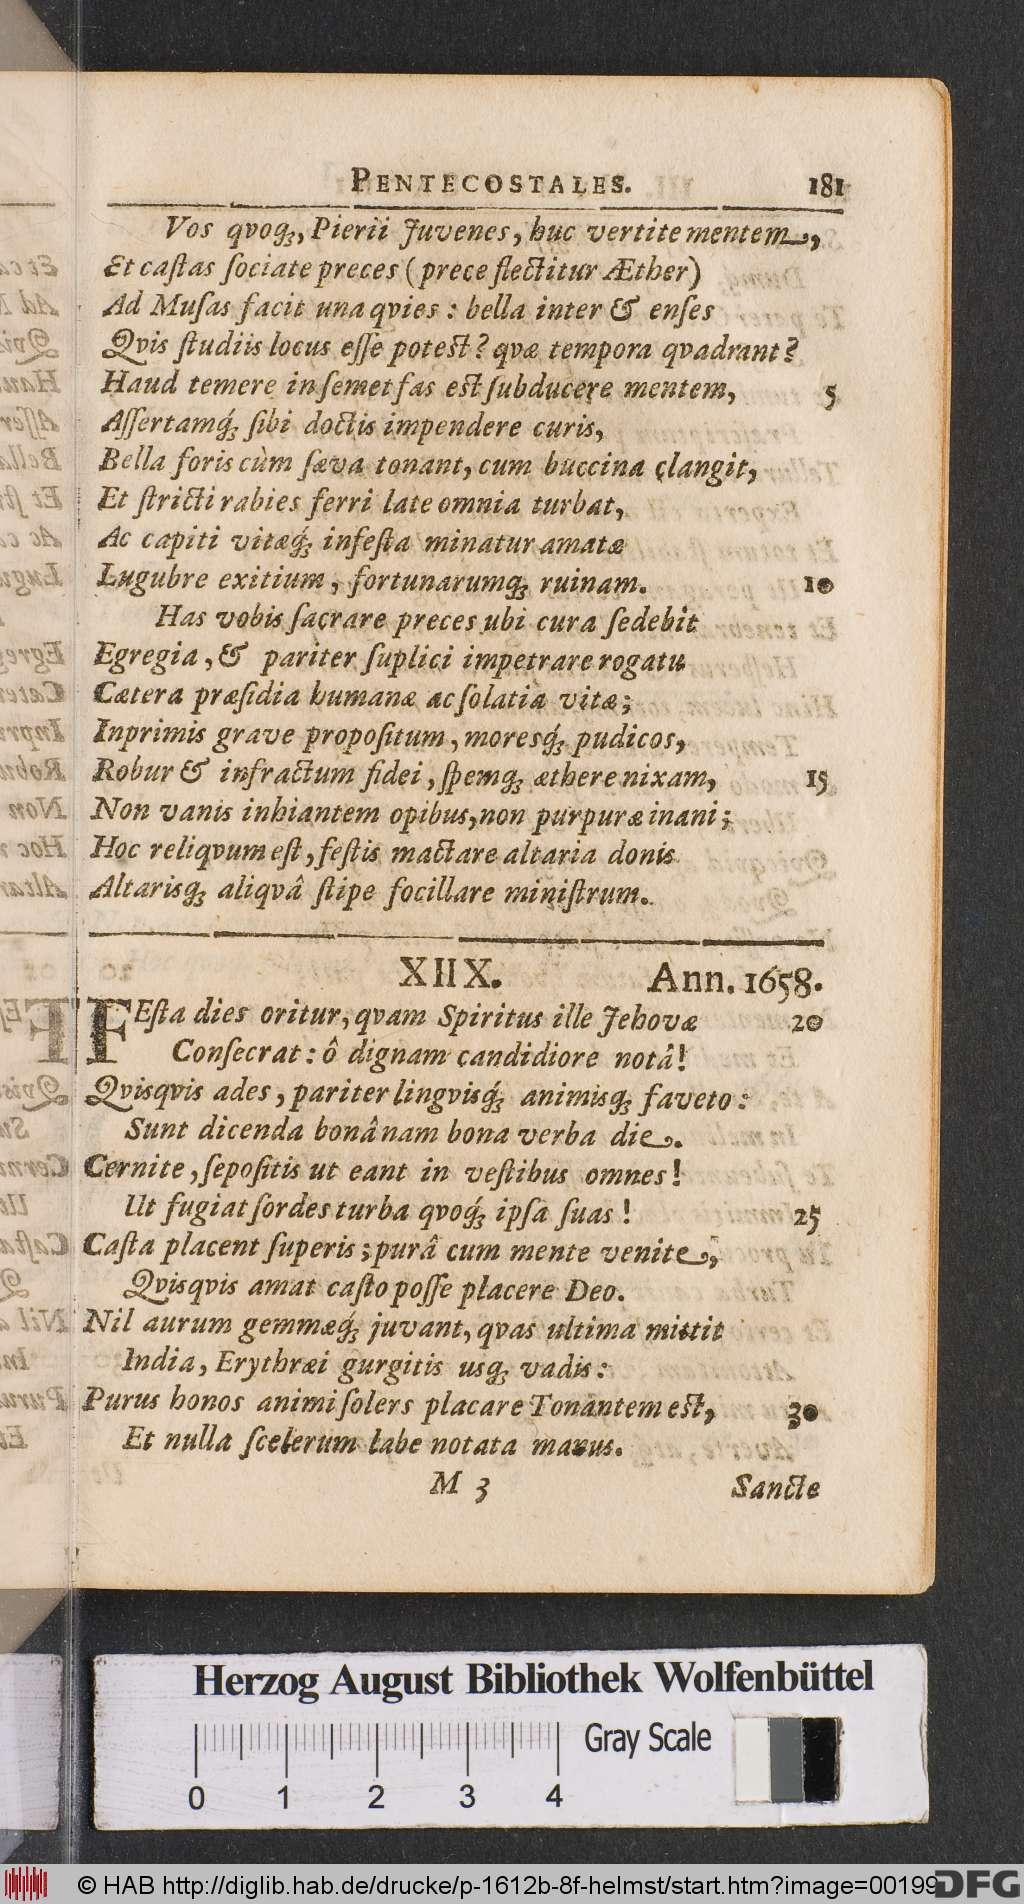 PENTECOSTALES. 181
Vos qvoq́;, Pierii Juvenes, huc vertite mentem,
Et caſtas ſociate preces (prece flectitur Æther)
Ad Muſas facit una qvies: bella inter & enſes
Qvis ſtudiis locus eſſe poteſt? qvæ tempora qvadrant?
Haud temere in ſemet fas eſt ſubducere mentem, 5
Aſſertamq́; ſibi doctis impendere curis,
Bella foris cùm ſæva tonant, cum buccina clangit,
Et ſtricti rabies ferri late omnia turbat,
Ac capiti vitæq́; infeſta minatur amatæ
Lugubre exitium, fortunarumq; ruinam. 10
Has vobis ſacrare preces ubi cura ſedebit
Egregia, & pariter ſuplici impetrare rogatu
Cætera præſidia humanæ ac ſolatia vitæ;
Inprimis grave propoſitum, moresq́; pudicos,
Robur & infractum fidei, ſpemq; æthere nixam, 15
Non vanis inhiantem opibus, non purpuræ inani;
Hoc reliqvum eſt, feſtis mactare altaria donis
Altarisq; aliqvâ ſtipe focillare miniſtrum.
XIIX. Ann. 1658.
FEſta dies oritur, qvam Spiritus ille Jehovæ 20
Conſecrat: ô dignam candidiore notâ!
Qvisqvis ades, pariter lingvisq́; animisq; faveto:
Sunt dicenda bonâ nam bona verba die.
Cernite, ſepoſitis ut eant in veſtibus omnes!
Ut fugiat ſordes turba qvoq́; ipſa ſuas! 25
Caſta placent ſuperis; purâ cum mente venite,
Qvisqvis amat caſto poſſe placere Deo.
Nil aurum gemmæq́; juvant, qvas ultima mittit
India, Erythræi gurgitis usq; vadis:
Purus honos animi ſolers placare Tonantem eſt, 30
Et nulla ſcelerum labe notata manus.
M 3 Sancte
Herzog August Bibliothek Wolfenbüttel
Gray Scale
0 1 2 3 4
© HAB http://diglib.hab.de/drucke/p-1612b-8f-helmst/start.htm?image=00199
DFG